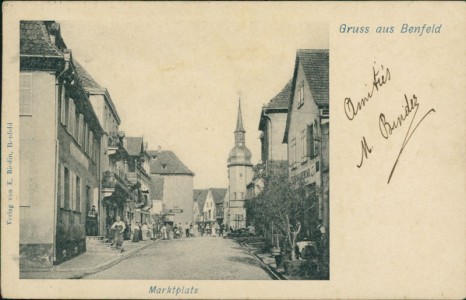 Gruss aus Benfeld
Amitiés
M. Binder
Verlag von E. Bindin, Benfeld
Marktplatz